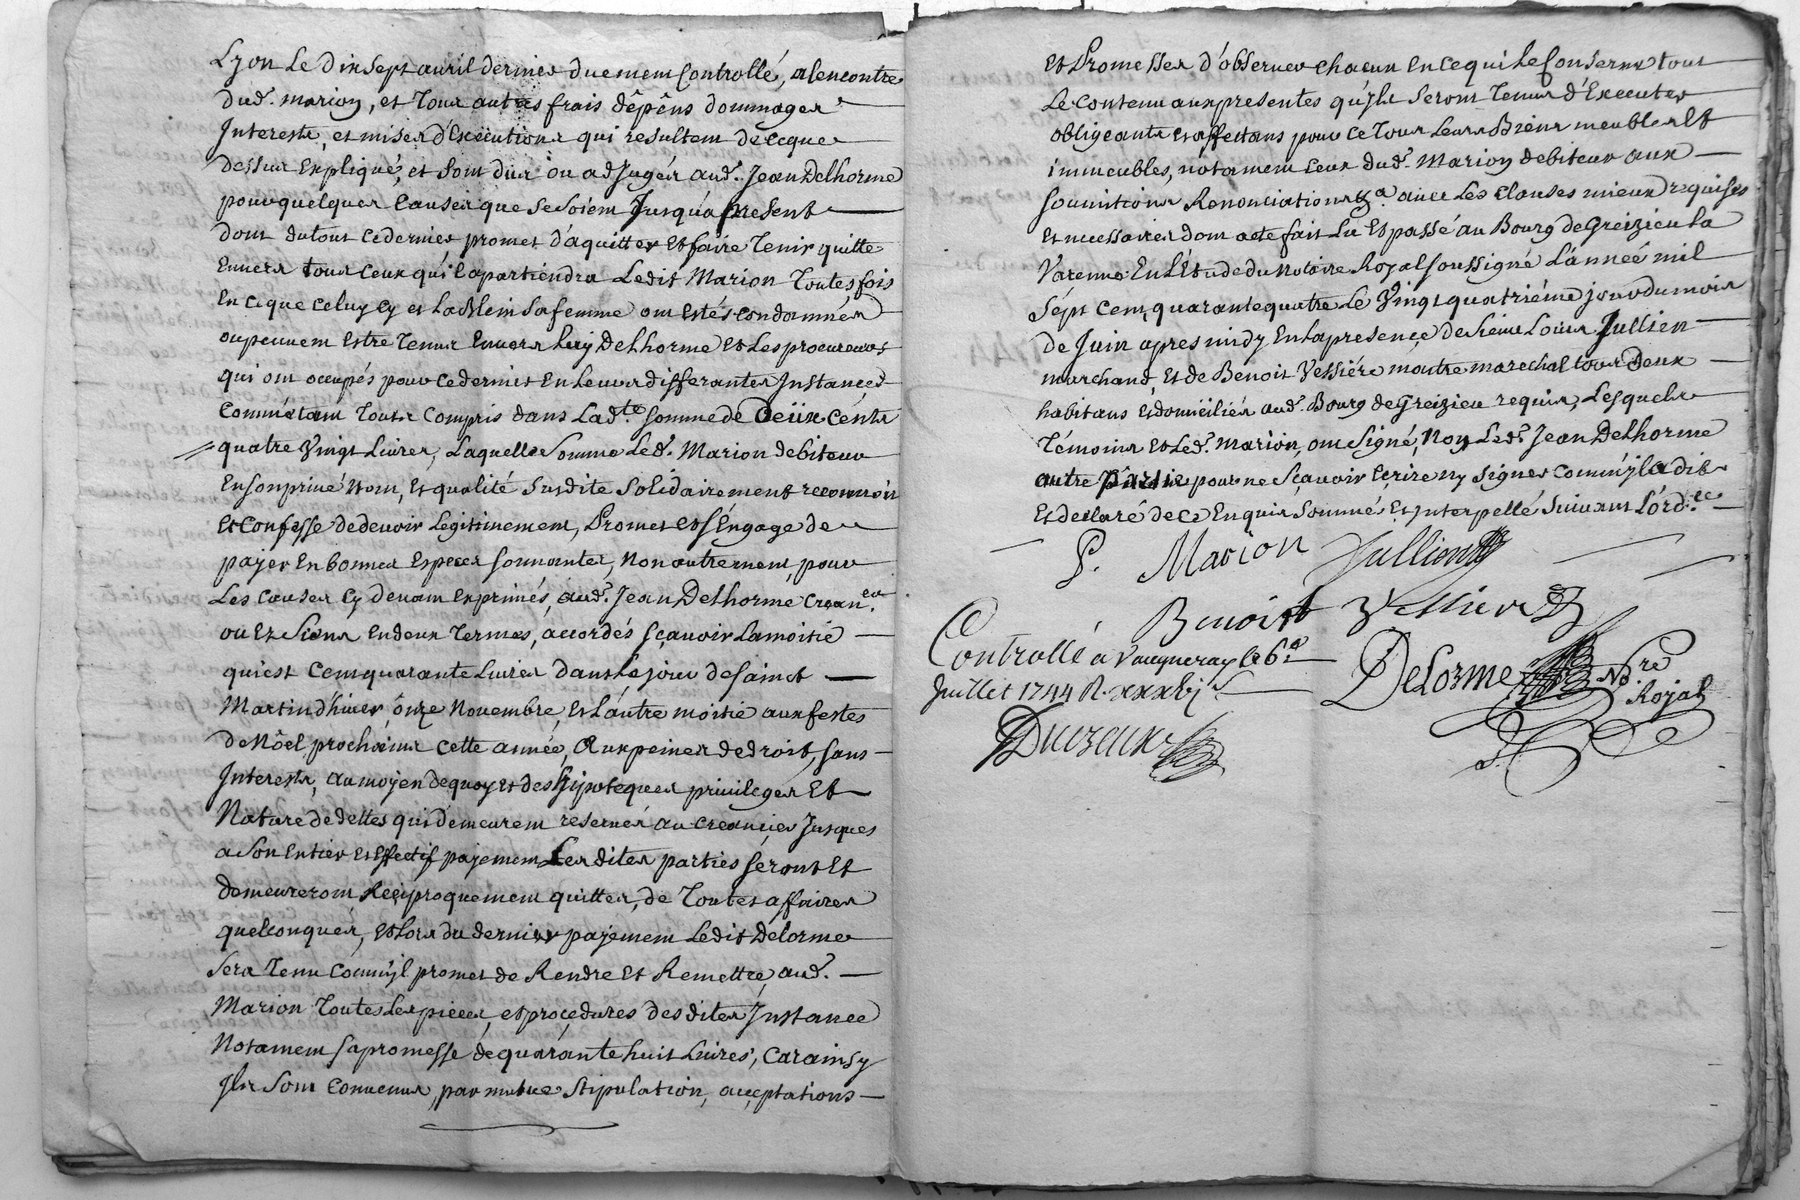 Lyon Le Dixsept avril dernier duement Controllé, alencontre
dud. marion, et Tous autres frais dépens dommages
Interests, et mises d'Exécutions qui resultent de ceque
dessus Expliqué, et sont dus ou adjugés aud. Jean Delhorme
pour quelques Causes que se soient Jusqu'a présent
dont du tout ce dernier promet d'aquitter Et faire Tenir quitte
Envers tous ceux qu'il apartiendra Ledit Marion Toutes fois
En ce que celuy cy et sa femme ont Estés condamnés
ou peuvent Estre Tenus Envers luy Delhorme Et Les procureurs
qui ont occupés pour ce dernier En Leurs differantes Instances
Comm'étant Touts Compris dans Lad.te somme de Deux Cents
quatre Vingt Livres, Laquelle Somme Led. Marion debiteur
En son privé Nom, Et qualité Susdite Solidairement reconnoit
Et Confesse de devoir Legitimement, Promet et s'Engage de
payer En bonnes Especes sonnantes, Non autrement, pour
Les causes Cy devant Exprimés, aud. Jean Delhorme Crean.er
ou Ez Siens En deux Termes, accordés sçavoir La moitié
qui est Cent quarante Livres dans Le jour de saint
Martin d'hiver, ônze Novembre, Et L'autre moitié aux festes
de Nôel prochaines cette année, Aux peines de droit, sans
Interests, au moyen de quoy Et des hipoteques privileges Et
Nature de dettes qui demeurent reservés au creancier Jusques
a Son Entier Et Effectif payement Les dites parties seront Et
demeureront Reciproquement quittes, de Toutes affaires
quelconques, Et Lors du dernier payement Ledit Delorme
Sera Tenu Comm'jl promet de Rendre Et Remettre aud.
Marion Toutes Les pieces, et procedures des dites Instance
Notament sa promesse de quarante huit Livres, Car ainsy
Jls Sont Convenus, par mutue Stipulation, acceptations
Et Promesses d'observer chacun En ce qui Le Conserne tout
Le Contenu aux presentes qu'jls seront Tenus d'Executer
obligeants Et affectans pour ce Tous Leurs Biens meubles Et
immeubles, notament Ceux dud. Marion debiteur aux
soumitions Renonciations &a. avec Les Clauses mieux requises
Et necessaires dont acte fait Lu Et passé au Bourg de Greizieu la
Varenne En L'Etude du Notaire Royal soussigné L'année mil
Sept Cent quarante quatre Le Vingt quatriéme jour du mois
de Juin apres midy En la presence de Sieur Louis Jullien
marchand, Et de Benoit Vessiére maitre marechal tous Deux
habitans Et domiciliés aud. Bourg de Greizieu requis, Lesquels
Témoins Et Led. Marion, ont Signé, Non Led. Jean Delhorme
autre Partie pour ne Sçavoir Ecrire ny Signer Comm'jl a dit
Et declaré de ce Enquis Sommés Et Interpellé Suivant L'ord.ce
P. Marion Jullien
Benoist Vessiere
Controllé a Vaugneray le 6e
Juillet 1744 R. xxxvj s
DeLorme N.re
Royal